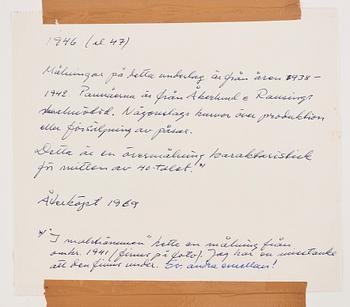 1946 (el 47)
Målningar på detta underlag är från åren 1938-
1942. Pannåerna är från Åkerlund & Rausings
Någonslags kurvor över produktion
eller försäljning av påsar.
Detta är en övermålning karakteristisk
för mitten av 40-talet.*)
Återköpt 1969
*) "I malströmmen" hette en målning från
omkr. 1941 (finns på foto). Jag har en misstanke
att den finns under. En andra emellan!